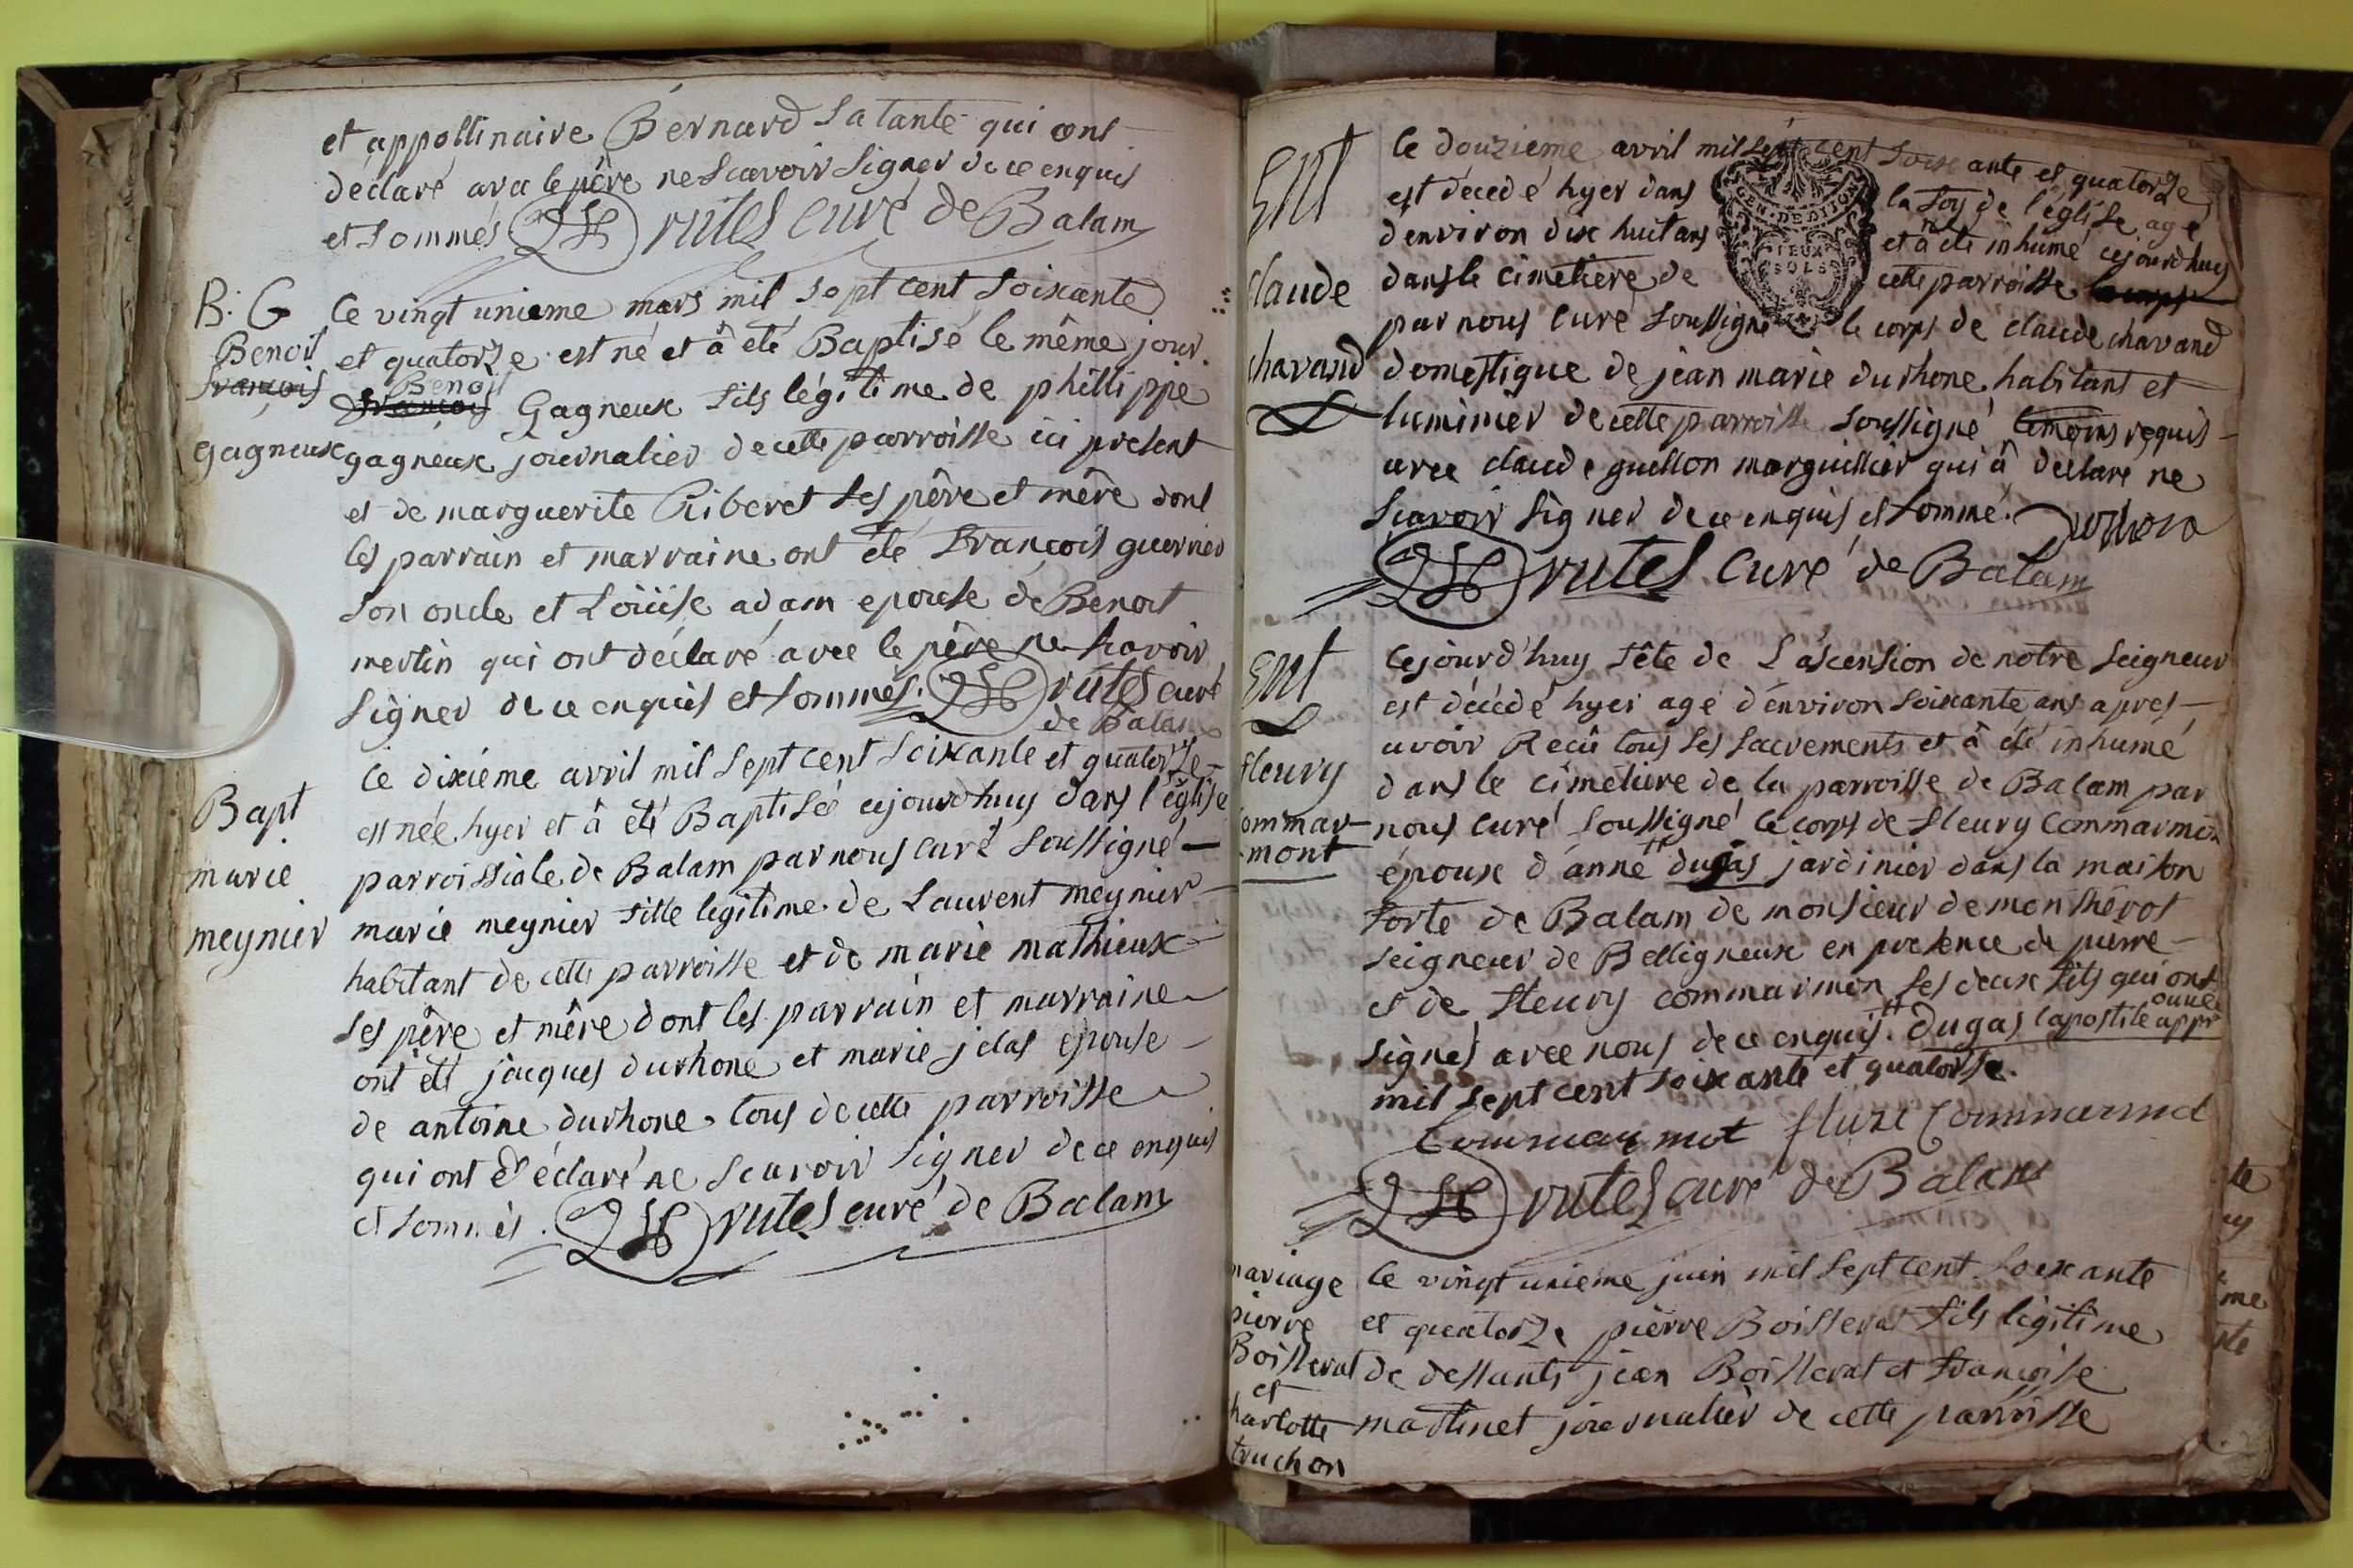 et appollinaire Bernard sa tante qui ont
déclaré avec le père ne scavoir signer de ce enquis
et sommés rutes curé de Balam
B: G
Benoit
françois
gagneux
Ce vingt unieme mars mil sept cent soixante
et quatorze est né et â été Baptisé le même jour
françois Benoit Gagneux fils légitime de phillippe
gagneux journalier de cette parroisse ici present
et de marguerite Riberet ses père et mère dont
les parrain et marraine ont été François guernier
son oncle et Loüise adam epouse de Benoit
merlin qui ont déclaré avec le père ne scavoir
signer de ce enquis et sommés. rutes curé
de Balam
Bapt
marie
meynier
Ce dixiéme avril mil sept cent soixante et quatorze
est née hyer et â été Baptisée cejourdhuy dans l'église
parroissiale de Balam par nous curé soussigné
marie meynier fille legitime de Laurent meynier
habitant de cette parroisse et de marie mathieux
ses père et mère dont les parrain et marraine
ont été jacques durhone et marie jelas epouse
de antoine durhone tous de cette parroisse
qui ont déclaré ne scavoir signer de ce enquis
et sommés. rutes curé de Balam
Ent
claude
chavand
Ce douzieme avril mil sept cent soixante et quatorze
est décedé hyer dans la foy de l'église agé
d'environ dix huit ans et â été inhumé cejourdhuy
dans le cimetiere de cette parroisse
par nous curé soussigné le corps de claude chavand
GEN. DE DIJON
DEUX
SOLS
domestique de jean marie durhone habitant et
luminier de cette parroisse soussigné témoins requis
avec claude guellon marguillier qui â déclaré ne
scavoir signer de ce enquis et sommé.
rutes curé de Balam
Ent
fleury
commar-
mont
Cejourd'huy fête de L'ascension de notre seigneur
est décédé hyer agé d'environ soixante ans apres
avoir Reçû tous ses sacrements et â été inhumé
dans le cimetiere de la parroisse de Balam par
nous curé soussigné le corps de fleury Commarmon
époux d'anne dugas jardinier dans la maison
forte de Balam de monsieur de montherot
seigneur de Belligneux en presence de pierre
et de fleury commarmon ses deux fils qui ont
signés avec nous de ce enquis. dugas l'apostile approuvée
mil sept cent soixante et quatorze.
Commarmot fluri Commarmot
rutes curé de Balam
mariage
pierre
Boisserat
et
charlotte
truchon
Ce vingt unieme juin mil sept cent soixante
et quatorze pierre Boisserat fils légitime
de deffunts jean Boisserat et Françoise
martinet journalier de cette parroisse